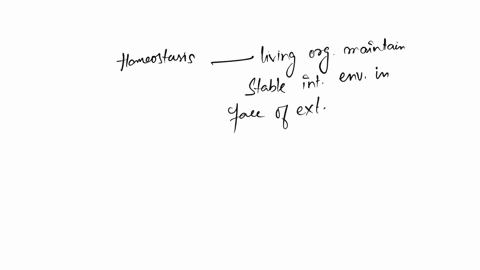 Homeostasis — living org. maintain
stable int. env. in
face of ext.